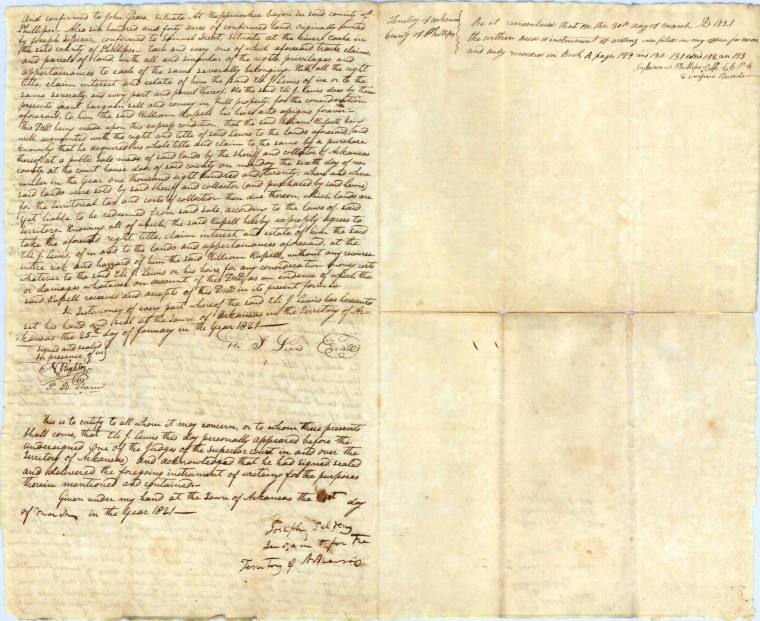 And confirmed to John Grace, situate at Kapperwokee bayou in said county of
Phillips. Also six hundred and forty acres of confirmed land, originally
by Joseph confirmed to situate at the
the said county of Phillips. each and every one of which aforesaid tracts, claims,
and parcels of land with all and singular the rights, privilages and
appertainances to each of the same severally belonging. With all the right
title, claim interest and estate of him the said Eli J. Lewis of in or to the
same severally, and every part and parcel thereof. He the said Eli J. Lewis does by these
presents grant bargain sell and convey in full property, for the consideration
aforesaid, to him the said William Russell his heirs and assigns forever.
This Deed being made upon this express condition, that the said William Russell being
well acquainted with the right and title of said Lewis to the lands aforesaid, and
knowing that he acquired his whole title and claim to the same by a purchase
thereof at a public Sale made of said lands by the Sheriff and collector of Arkansas
county at the court house door of said county on monday the sixth day of no-
vember in the Year one thousand eight hundred and twenty, when and where
said lands were sold by said Sheriff and collector (and purchased by said Lewis)
for the Territorial tax and costs of collection then due thereon, which lands are
yet liable to be redeemed from said sale, according to the laws of said
territory. Knowing all of which, the said Russell hereby expressly agrees to
take the aforesaid right, title, claim interest and estate of him the said
Eli J. Lewis, of in and to the lands and appertainances aforesaid, at the
entire risk and hazzard of him the said William Russell, without any recourse
whatever to the said Eli J. Lewis or his heirs for any consideration money, costs
or damages whatever on account of this Deed, as an evidence of which the
said Russell receives and accepts of this Deed in its present form.
In testimony of every part whereof the said Eli J. Lewis has hereunto
set his hand and seal at the Town of Arkansas in the Territory of Ar-
kansas the 25th day of January in the Year 1821
signed and sealed
in presence of us
Eli J Lewis Seal
N Rightor
This is to certify to all whom it may concern, or to whom these presents
shall come, that Eli J. Lewis this day personally appeared before the
undersigned (one of the Judges of the Superior Court in and over the
Territory of Arkansas) and acknowledged that he had signed sealed
and delivered the foregoing instrument of writing for the purposes
therein mentioned and contained.
Given under my hand at the Town of Arkansas the day
of March in the Year 1821
Joseph Selden
Judge in & for the
Territory of Arkansas
Territory of Arkansas
County of Phillips
Be it remembered that on the 30th day of march AD 1821
the within deed or instrument of writing was filed in my office for record
and duly recorded in Book A, pages 129 and 130 131 and 132 and 133
Sylvanus Phillips, Clk C C P C
& exofficio Recorder